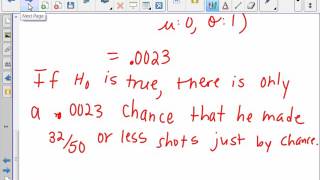 Next Page
μ:0, σ:1)
= .0023
If H₀ is true, there is only
a .0023 chance that he made
32/50 or less shots just by chance.